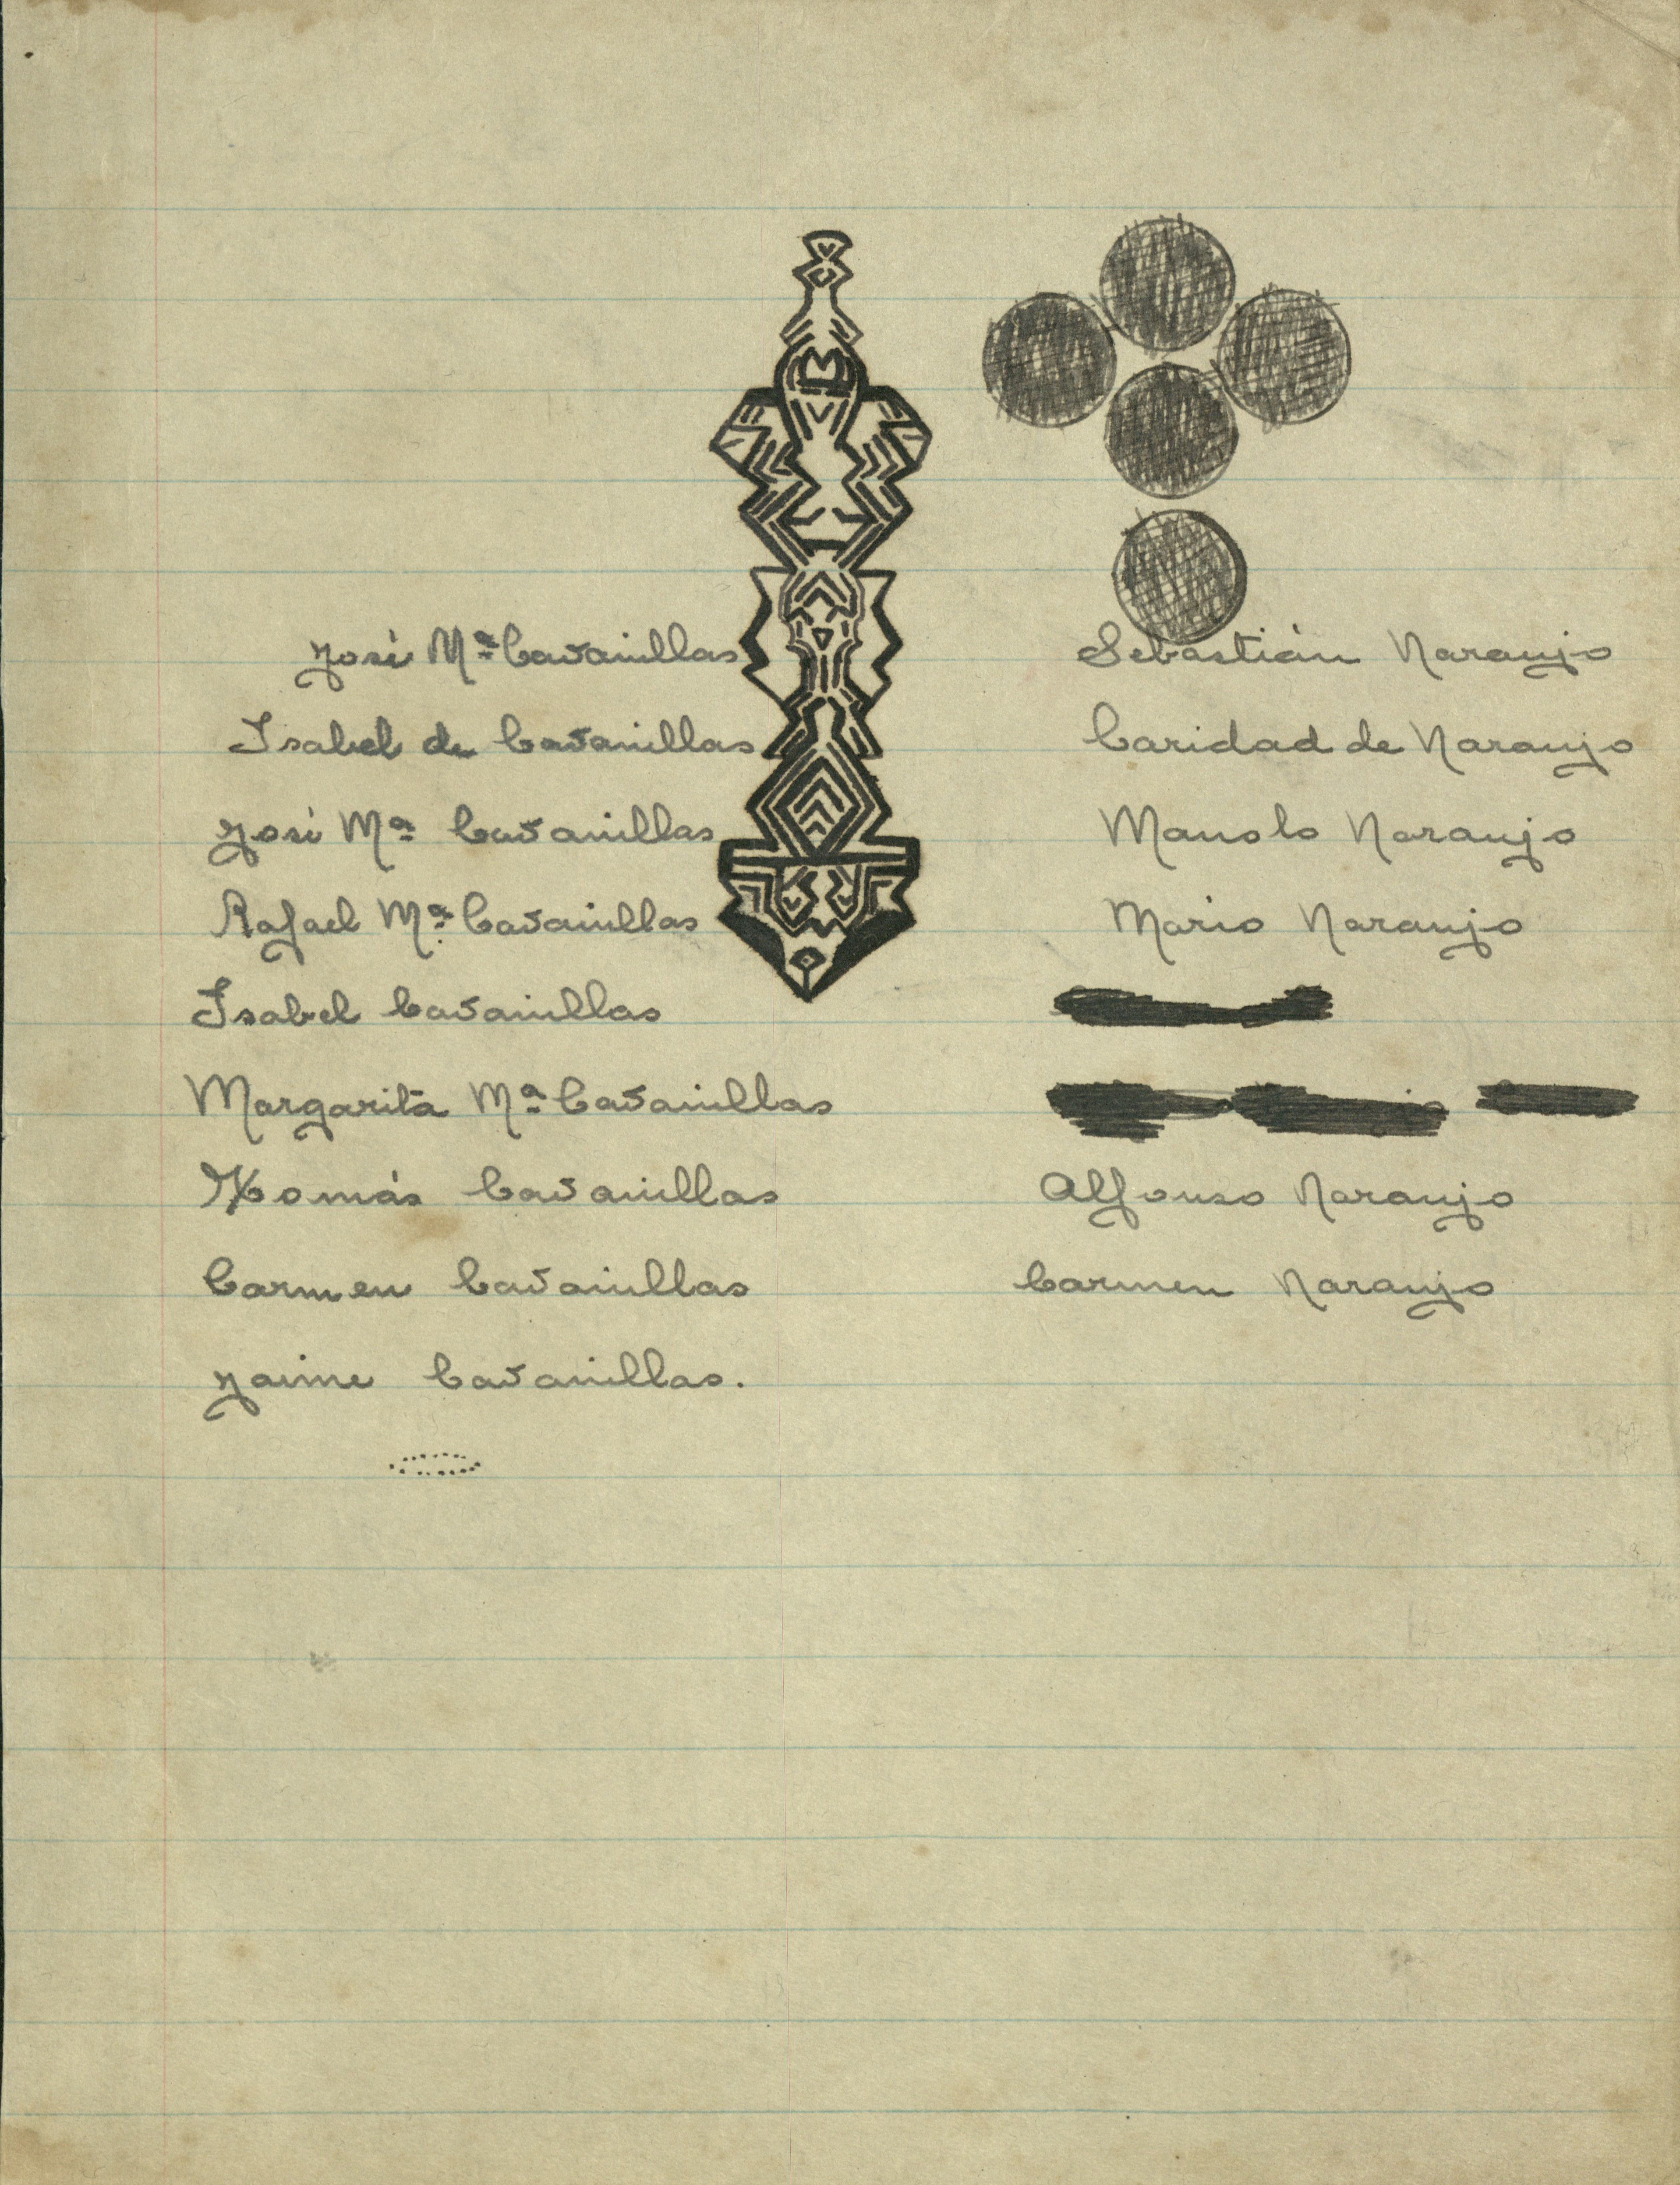 José Mª Cavanillas
Isabel de Cavanillas
José Mª Cavanillas
Rafael Mª Cavanillas
Isabel Cavanillas
Margarita Mª Cavanillas
Tomás Cavanillas
Carmen Cavanillas
Jaime Cavanillas.
Sebastián Naranjo
Caridad de Naranjo
Manolo Naranjo
Mario Naranjo
Alfonso Naranjo
Carmen Naranjo